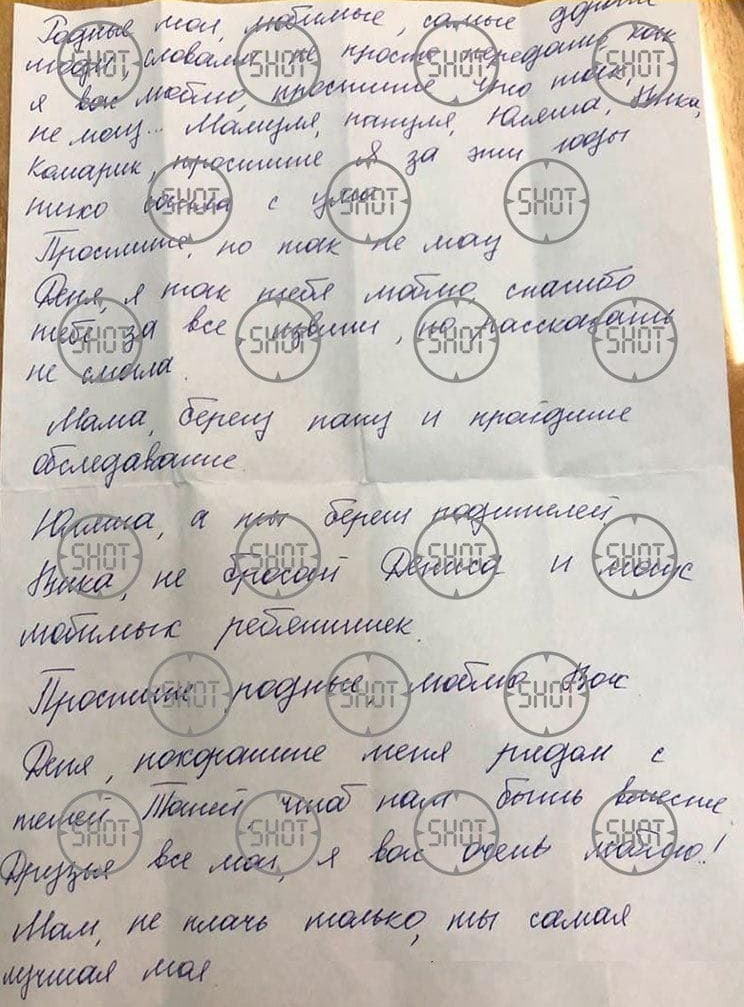 Родные мои, любимые, самые дорогие
люди, словами не просто передать как
я вас люблю, простите что так,
не могу... Мамуля, папуля, Юляша, Вика,
Комарик, простите Я за эти годы
тихо сошла с ума
Простите, но так не могу
Деня, я так тебя люблю, спасибо
тебе за все извини, но рассказать
не смогла.
Мама, берегу папу и пройдите
обследование
Юляша, а ты береги родителей
Вика, не бросай Дениса и моих
любимых ребятишек.
Простите, родные, люблю Вас
Деня, похороните меня рядом с
тетей Таней, чтоб нам быть вместе
Друзья все мои, я вас очень люблю!
Мам, не плачь только, ты самая
лучшая моя
SHOT SHOT SHOT SHOT
SHOT SHOT SHOT
SHOT SHOT SHOT SHOT
SHOT SHOT SHOT SHOT
SHOT SHOT SHOT
SHOT SHOT SHOT SHOT